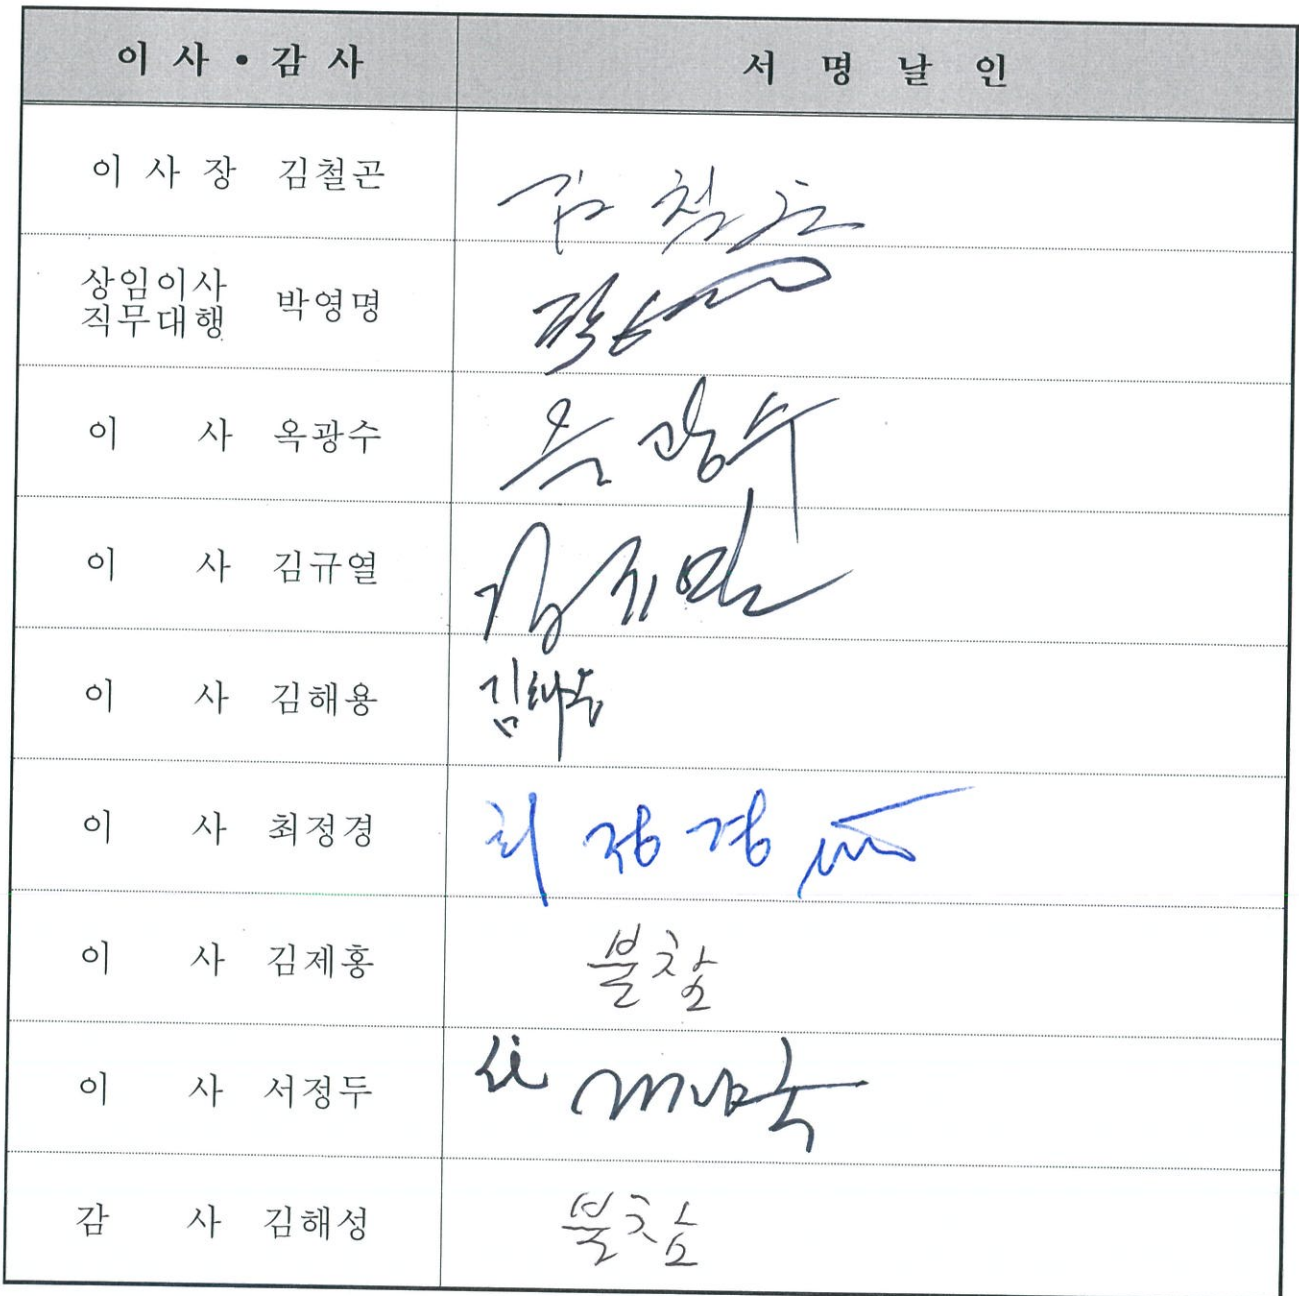 이 사 • 감 사 서 명 날 인
이 사 장 김철곤 김 철곤
상임이사
직무대행 박영명 박영
이 사 옥광수 옥 광수
이 사 김규열
이 사 김해용 김해용
이 사 최정경 최 정 경
이 사 김제홍 불참
이 사 서정두
감 사 김해성 불참